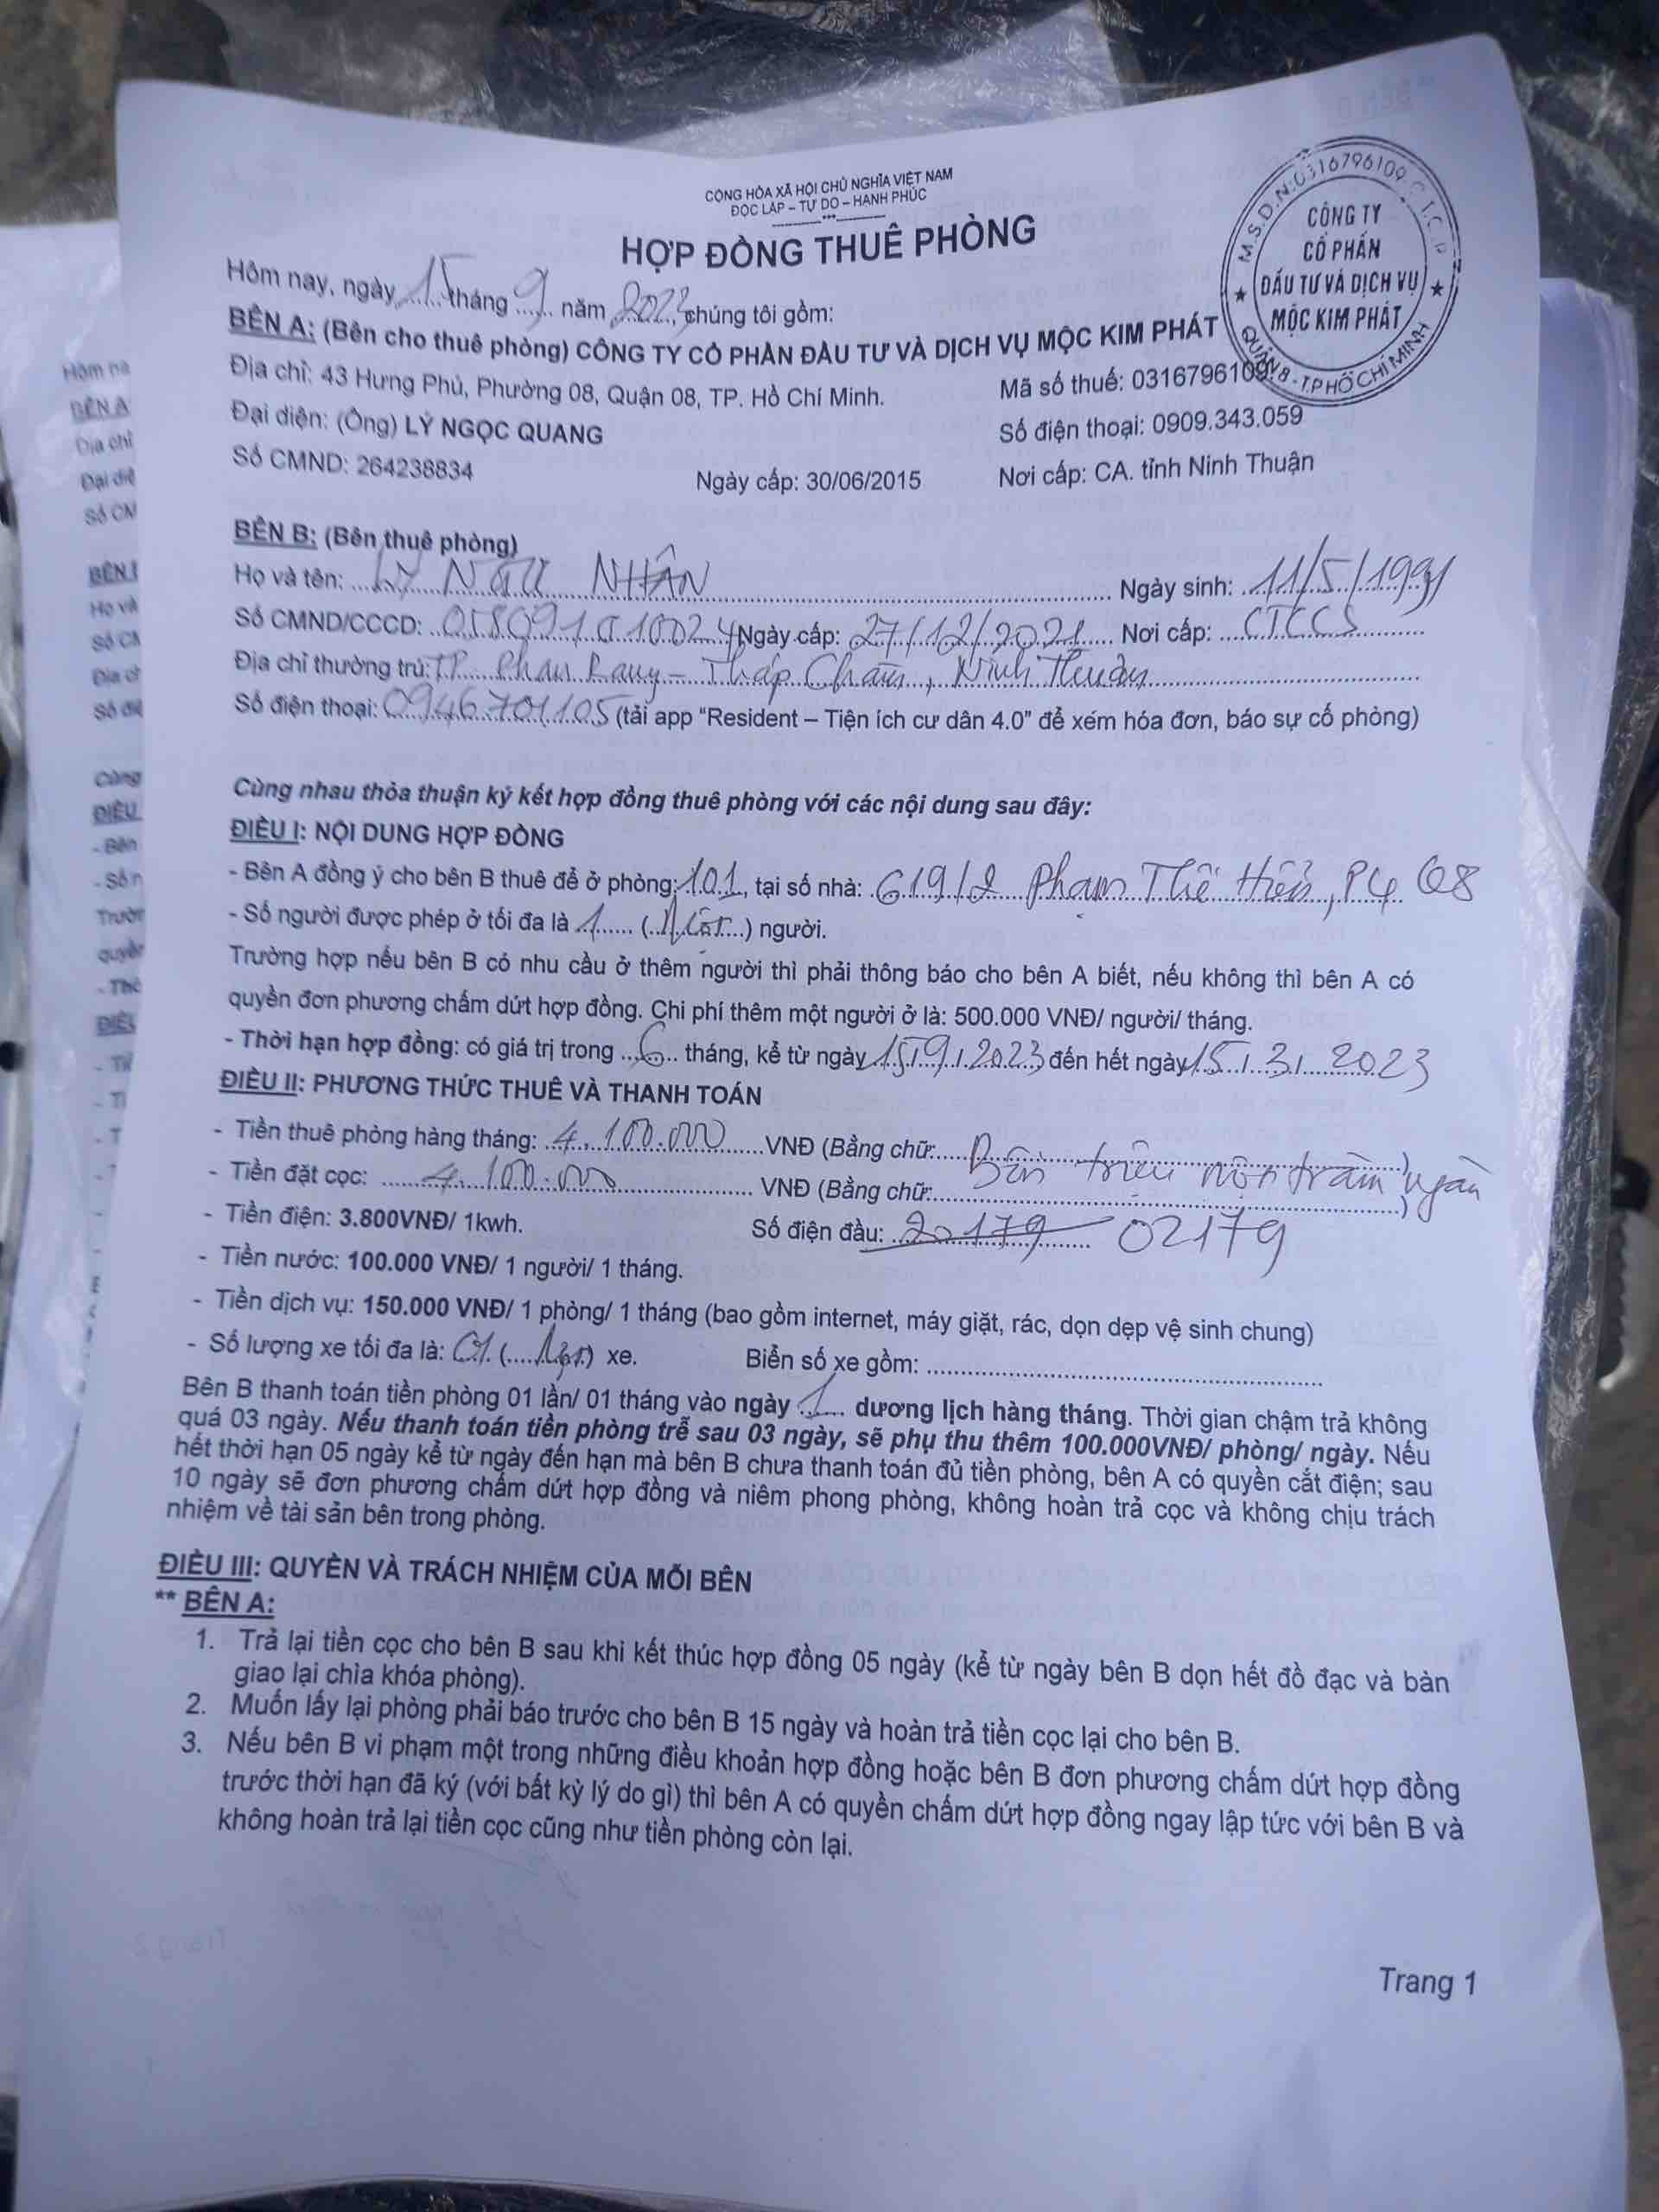 CỘNG HÒA XÃ HỘI CHỦ NGHĨA VIỆT NAM
ĐỘC LẬP – TỰ DO – HẠNH PHÚC
***
HỢP ĐỒNG THUÊ PHÒNG
M.S.D.N:0316796109 C.T.C.P
CÔNG TY
CỔ PHẦN
ĐẦU TƯ VÀ DỊCH VỤ
MỘC KIM PHÁT
QUẬN 8 - T.P HỒ CHÍ MINH
Hôm nay, ngày 15 tháng 9 năm 2023, chúng tôi gồm:
BÊN A: (Bên cho thuê phòng) CÔNG TY CỔ PHẦN ĐẦU TƯ VÀ DỊCH VỤ MỘC KIM PHÁT
Địa chỉ: 43 Hưng Phú, Phường 08, Quận 08, TP. Hồ Chí Minh. Mã số thuế: 0316796109
Đại diện: (Ông) LÝ NGỌC QUANG Số điện thoại: 0909.343.059
Số CMND: 264238834 Ngày cấp: 30/06/2015 Nơi cấp: CA. tỉnh Ninh Thuận
BÊN B: (Bên thuê phòng)
Họ và tên: NHÂN Ngày sinh: 11/5/1991
Số CMND/CCCD: 058091010024 Ngày cấp: 27/12/2021 Nơi cấp: CTCCS
Địa chỉ thường trú: TP. Phan Rang – Tháp Chàm, Ninh Thuận
Số điện thoại: 0946701105 (tải app “Resident – Tiện ích cư dân 4.0” để xem hóa đơn, báo sự cố phòng)
Cùng nhau thỏa thuận ký kết hợp đồng thuê phòng với các nội dung sau đây:
ĐIỀU I: NỘI DUNG HỢP ĐỒNG
- Bên A đồng ý cho bên B thuê để ở phòng: 101, tại số nhà: 619/2 Phạm Thế Hiển, P4 Q8
- Số người được phép ở tối đa là 1 (Một) người.
Trường hợp nếu bên B có nhu cầu ở thêm người thì phải thông báo cho bên A biết, nếu không thì bên A có
quyền đơn phương chấm dứt hợp đồng. Chi phí thêm một người ở là: 500.000 VNĐ/ người/ tháng.
- Thời hạn hợp đồng: có giá trị trong 6 tháng, kể từ ngày 15/9/2023 đến hết ngày 15/3/2023
ĐIỀU II: PHƯƠNG THỨC THUÊ VÀ THANH TOÁN
- Tiền thuê phòng hàng tháng: 4.100.000 VNĐ (Bằng chữ: )
- Tiền đặt cọc: 4.100.000 VNĐ (Bằng chữ: Bốn triệu một trăm ngàn)
- Tiền điện: 3.800VNĐ/ 1kwh. Số điện đầu: 20179 02179
- Tiền nước: 100.000 VNĐ/ 1 người/ 1 tháng.
- Tiền dịch vụ: 150.000 VNĐ/ 1 phòng/ 1 tháng (bao gồm internet, máy giặt, rác, dọn dẹp vệ sinh chung)
- Số lượng xe tối đa là: 01 (Một) xe. Biển số xe gồm:
Bên B thanh toán tiền phòng 01 lần/ 01 tháng vào ngày 1 dương lịch hàng tháng. Thời gian chậm trả không
quá 03 ngày. Nếu thanh toán tiền phòng trễ sau 03 ngày, sẽ phụ thu thêm 100.000VNĐ/ phòng/ ngày. Nếu
hết thời hạn 05 ngày kể từ ngày đến hạn mà bên B chưa thanh toán đủ tiền phòng, bên A có quyền cắt điện; sau
10 ngày sẽ đơn phương chấm dứt hợp đồng và niêm phong phòng, không hoàn trả cọc và không chịu trách
nhiệm về tài sản bên trong phòng.
ĐIỀU III: QUYỀN VÀ TRÁCH NHIỆM CỦA MỖI BÊN
** BÊN A:
1. Trả lại tiền cọc cho bên B sau khi kết thúc hợp đồng 05 ngày (kể từ ngày bên B dọn hết đồ đạc và bàn
giao lại chìa khóa phòng).
2. Muốn lấy lại phòng phải báo trước cho bên B 15 ngày và hoàn trả tiền cọc lại cho bên B.
3. Nếu bên B vi phạm một trong những điều khoản hợp đồng hoặc bên B đơn phương chấm dứt hợp đồng
trước thời hạn đã ký (với bất kỳ lý do gì) thì bên A có quyền chấm dứt hợp đồng ngay lập tức với bên B và
không hoàn trả lại tiền cọc cũng như tiền phòng còn lại.
Trang 1